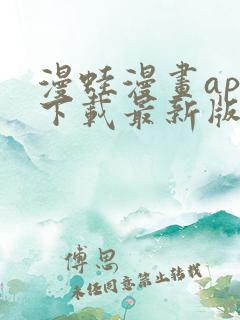 漫蛙漫畫ap
下載最新版
傅思
未经同意禁止转载